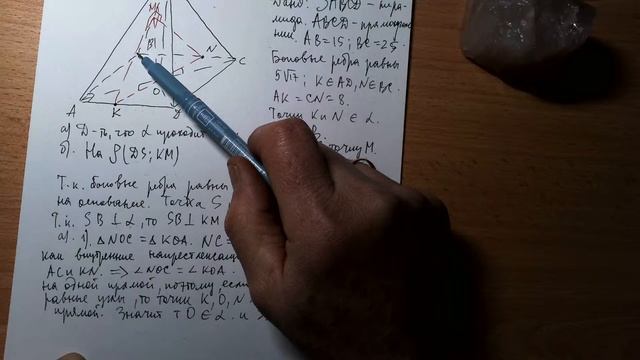 Дано: SABCD - пира-
мида. ABCD - прямоуголь-
ник. AB=15; BC=25.
Боковые ребра равны
5√17; K∈AD, N∈BC.
AK = CN = 8.
Точки K и N ∈ α.
точку M.
M
B
N
C
O
A
K
D
а) Д-ть, что α проходит
б). На ρ(DS; KM)
Т.к. боковые ребра равны
на основание. Точка S
Т.к. SB ⊥ α, то SB ⊥ KM
а). 1). △NOC = △KOA. NC =
как внутренние
AC и KN. => ∠NOC = ∠KOA.
на одной прямой, поэтому, если
равные углы, то точки K, O, N
прямой. Значит т O ∈ α. и